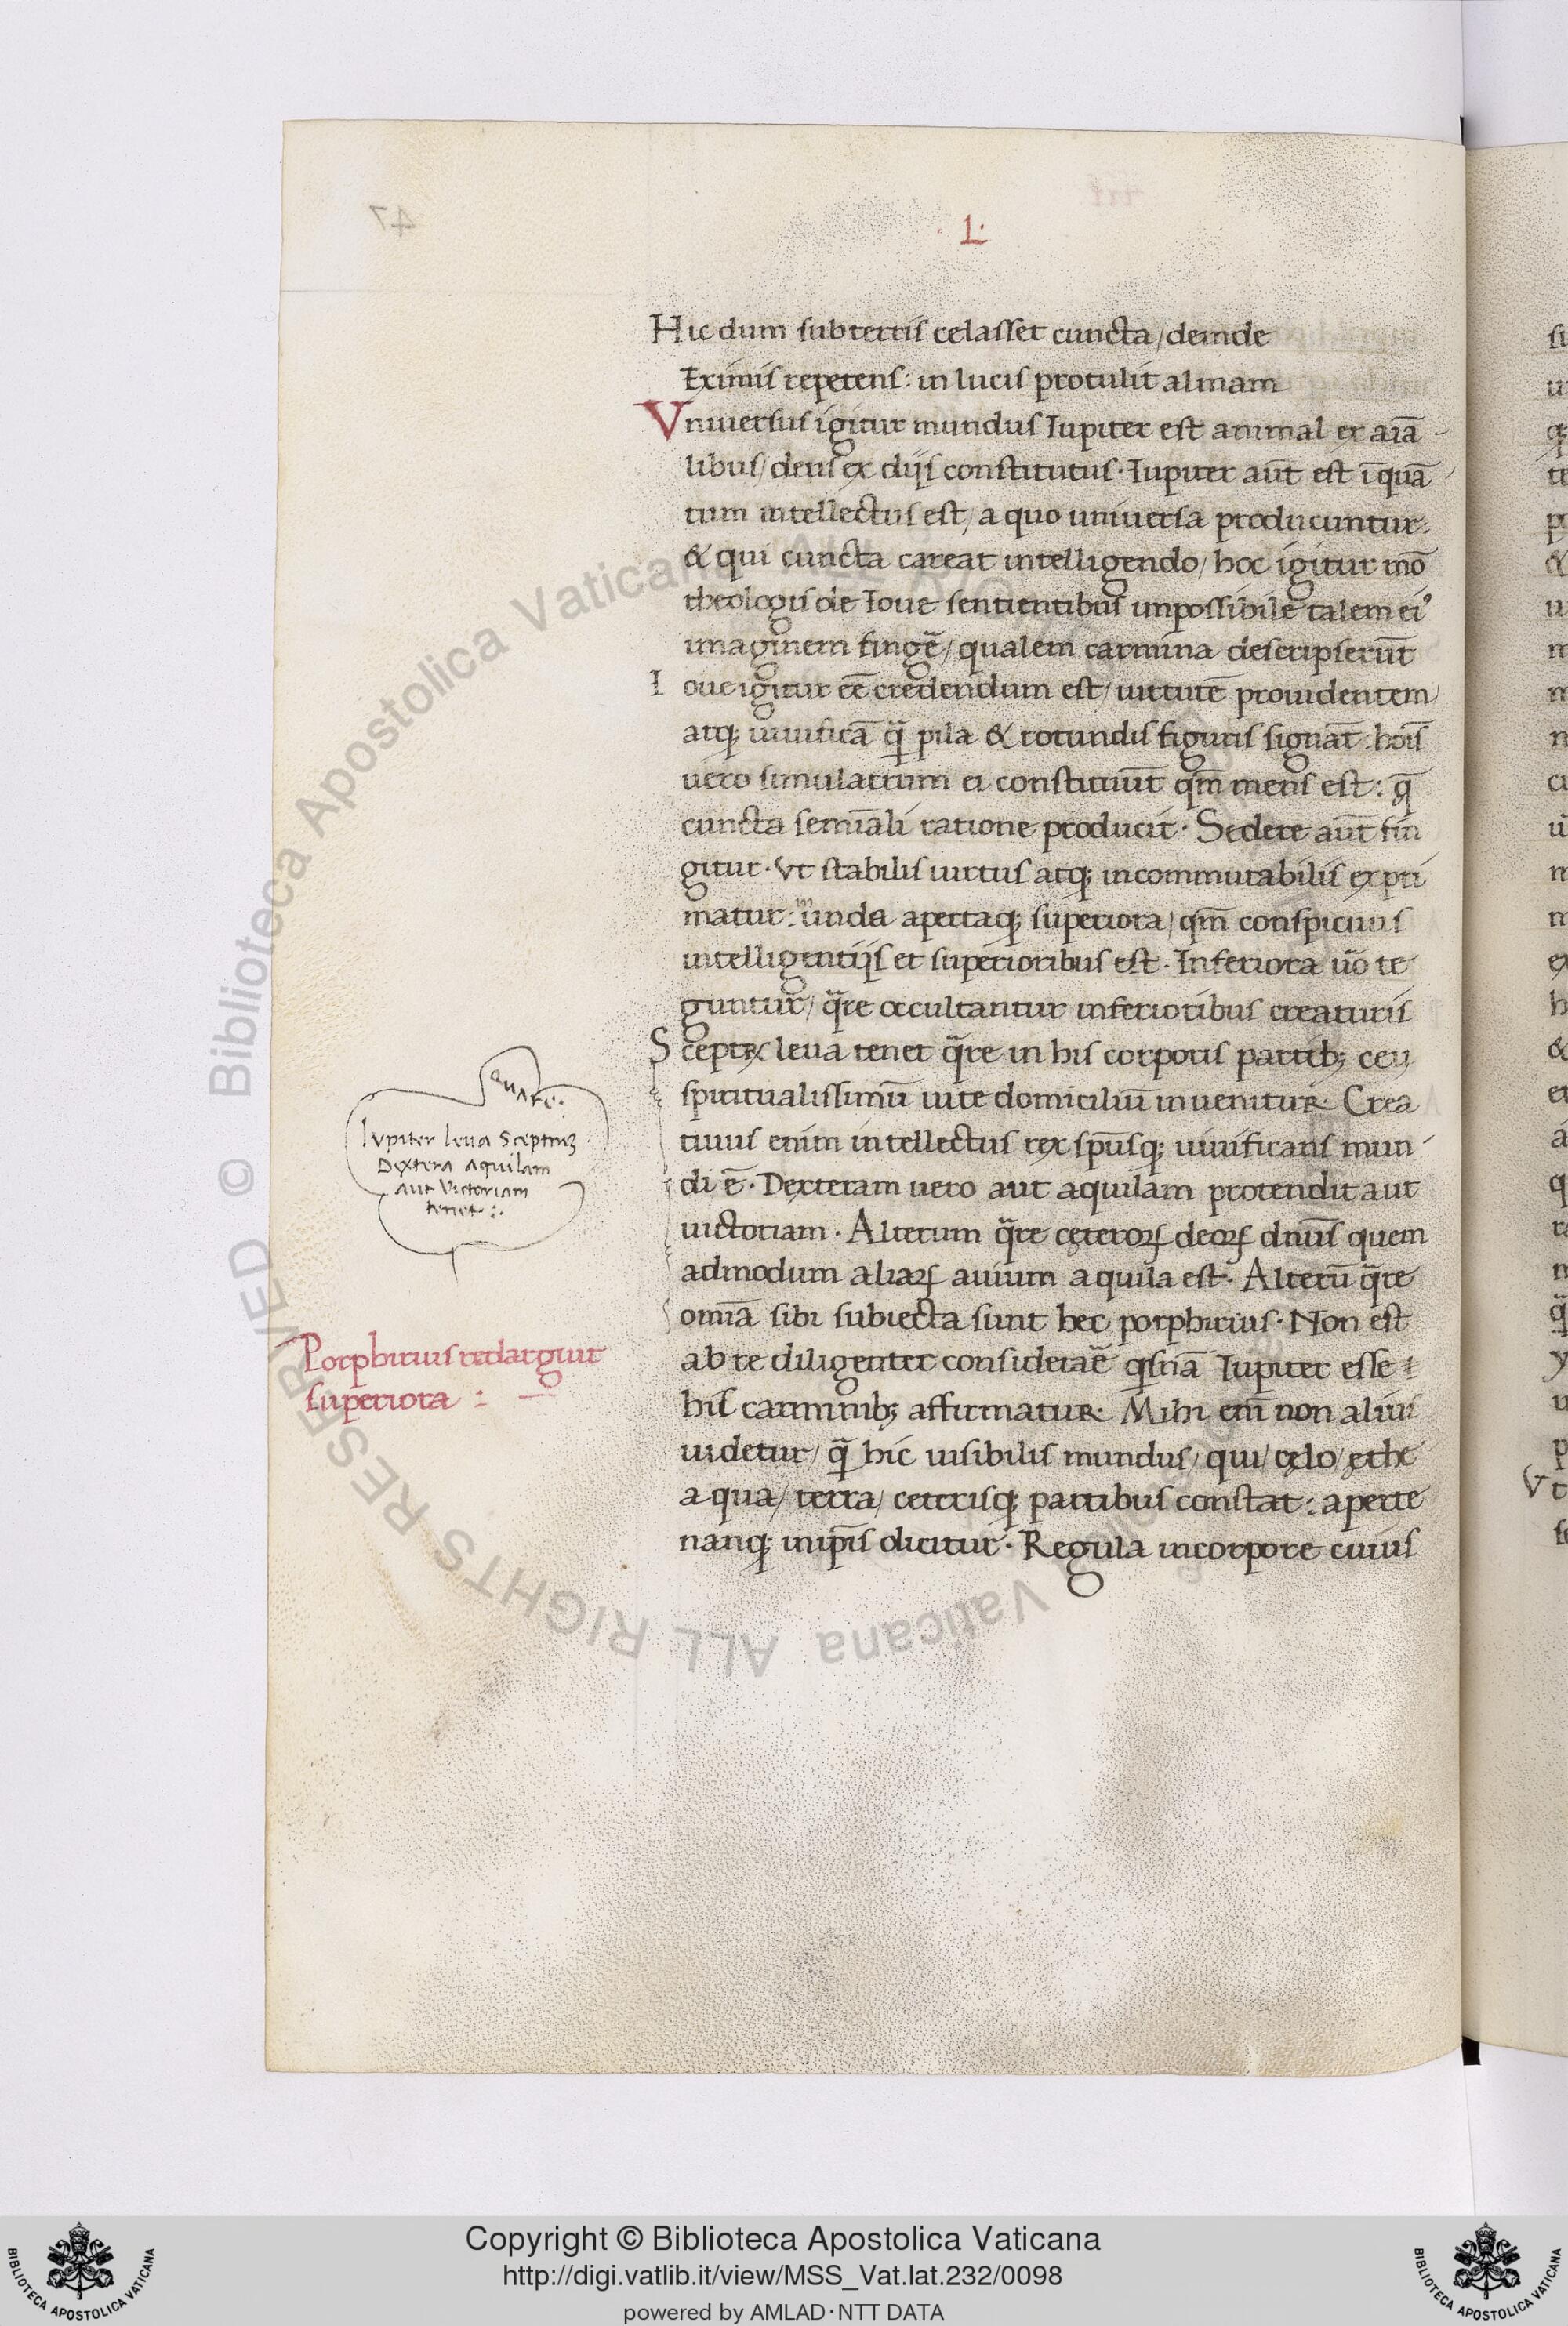 ·L·
Hic dum sub terris celasset cuncta / deinde
Eximis repetens: in lucis protulit almam
Vniuersus igitur mundus Iupiter est animal ex aīa-
libus / deus ex dijs constitutus · Iupiter aūt est ī quā
tum intellectus est / a quo uniuersa producuntur:
& qui cuncta careat intelligendo / hoc igitur mō
theologis de Ioue sentientibus impossibile talem eiꝰ
imaginem fingē / qualem carmina descripserūt
Ioue igitur eē credendum est / uirtutē prouidentem /
atq; uiuificā q̄ pila & rotundis figuris signāt: hoīs
uero simulacrum ei constitūt qm̄ mens est: q̄
cuncta semīali ratione producit · Sedere aūt fin
gitur · vt stabilis uirtus atq; incommutabilis expri
matur: unda apertaq; superiora / qm̄ conspicuus
intelligentijs et superioribus est · Inferiora ūo te
guntur / q̄re occultantur inferioribus creaturis
Sceptꝝ leua tenet q̄re in his corporis partib; ceu
spiritualissimū uite domiciliū inuenitur · Crea
tiuus enim intellectus rex sp̄usq; uiuificans mun-
di ē · Dexteram uero aut aquilam protendit aut
uictoriam · Alterum q̄re cęteroꝝ deoꝝ dn̄us quem
admodum aliaꝝ auium aquila est · Alterū q̄re
omīa sibi subiecta sunt hec porphirius · Non est
ab re diligenter considerāe qsnā Iupiter esse i
his carminib; affirmatur · Mihi eni̅ non aliui
uidetur / q̄ hic uisibilis mundus / qui / cęlo / ęthe
aqua / terra / ceterisq; partibus constat: aperte
nanq; in ip̄is dicitur · Regula incorpore cuius
quare·
Iupiter leua Sceptruꝫ
Dextera aquilam
aut Victoriam
tenet :·
Porphirius redarguit
superiora : —
© Biblioteca Apostolica Vaticana ALL RIGHTS RESERVED
Copyright © Biblioteca Apostolica Vaticana
http://digi.vatlib.it/view/MSS_Vat.lat.232/0098
powered by AMLAD·NTT DATA
BIBLIOTECA APOSTOLICA VATICANA
BIBLIOTECA APOSTOLICA VATICANA